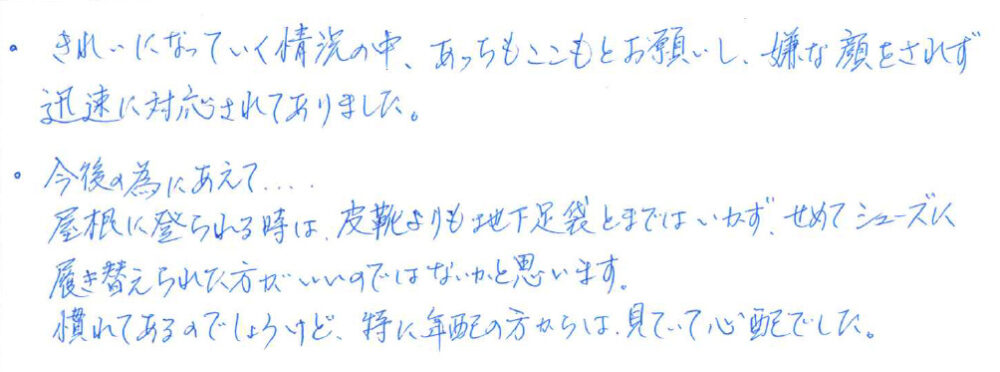 ・きれいになっていく情況の中、あっちもここもとお願いし、嫌な顔をされず
迅速に対応されてありました。
・今後の為にあえて....
屋根に登られる時は、皮靴よりも地下足袋とまではいかず、せめてシューズに
履き替えられた方がいいのではないかと思います。
慣れてあるのでしょうけど、特に年配の方からは、見ていて心配でした。